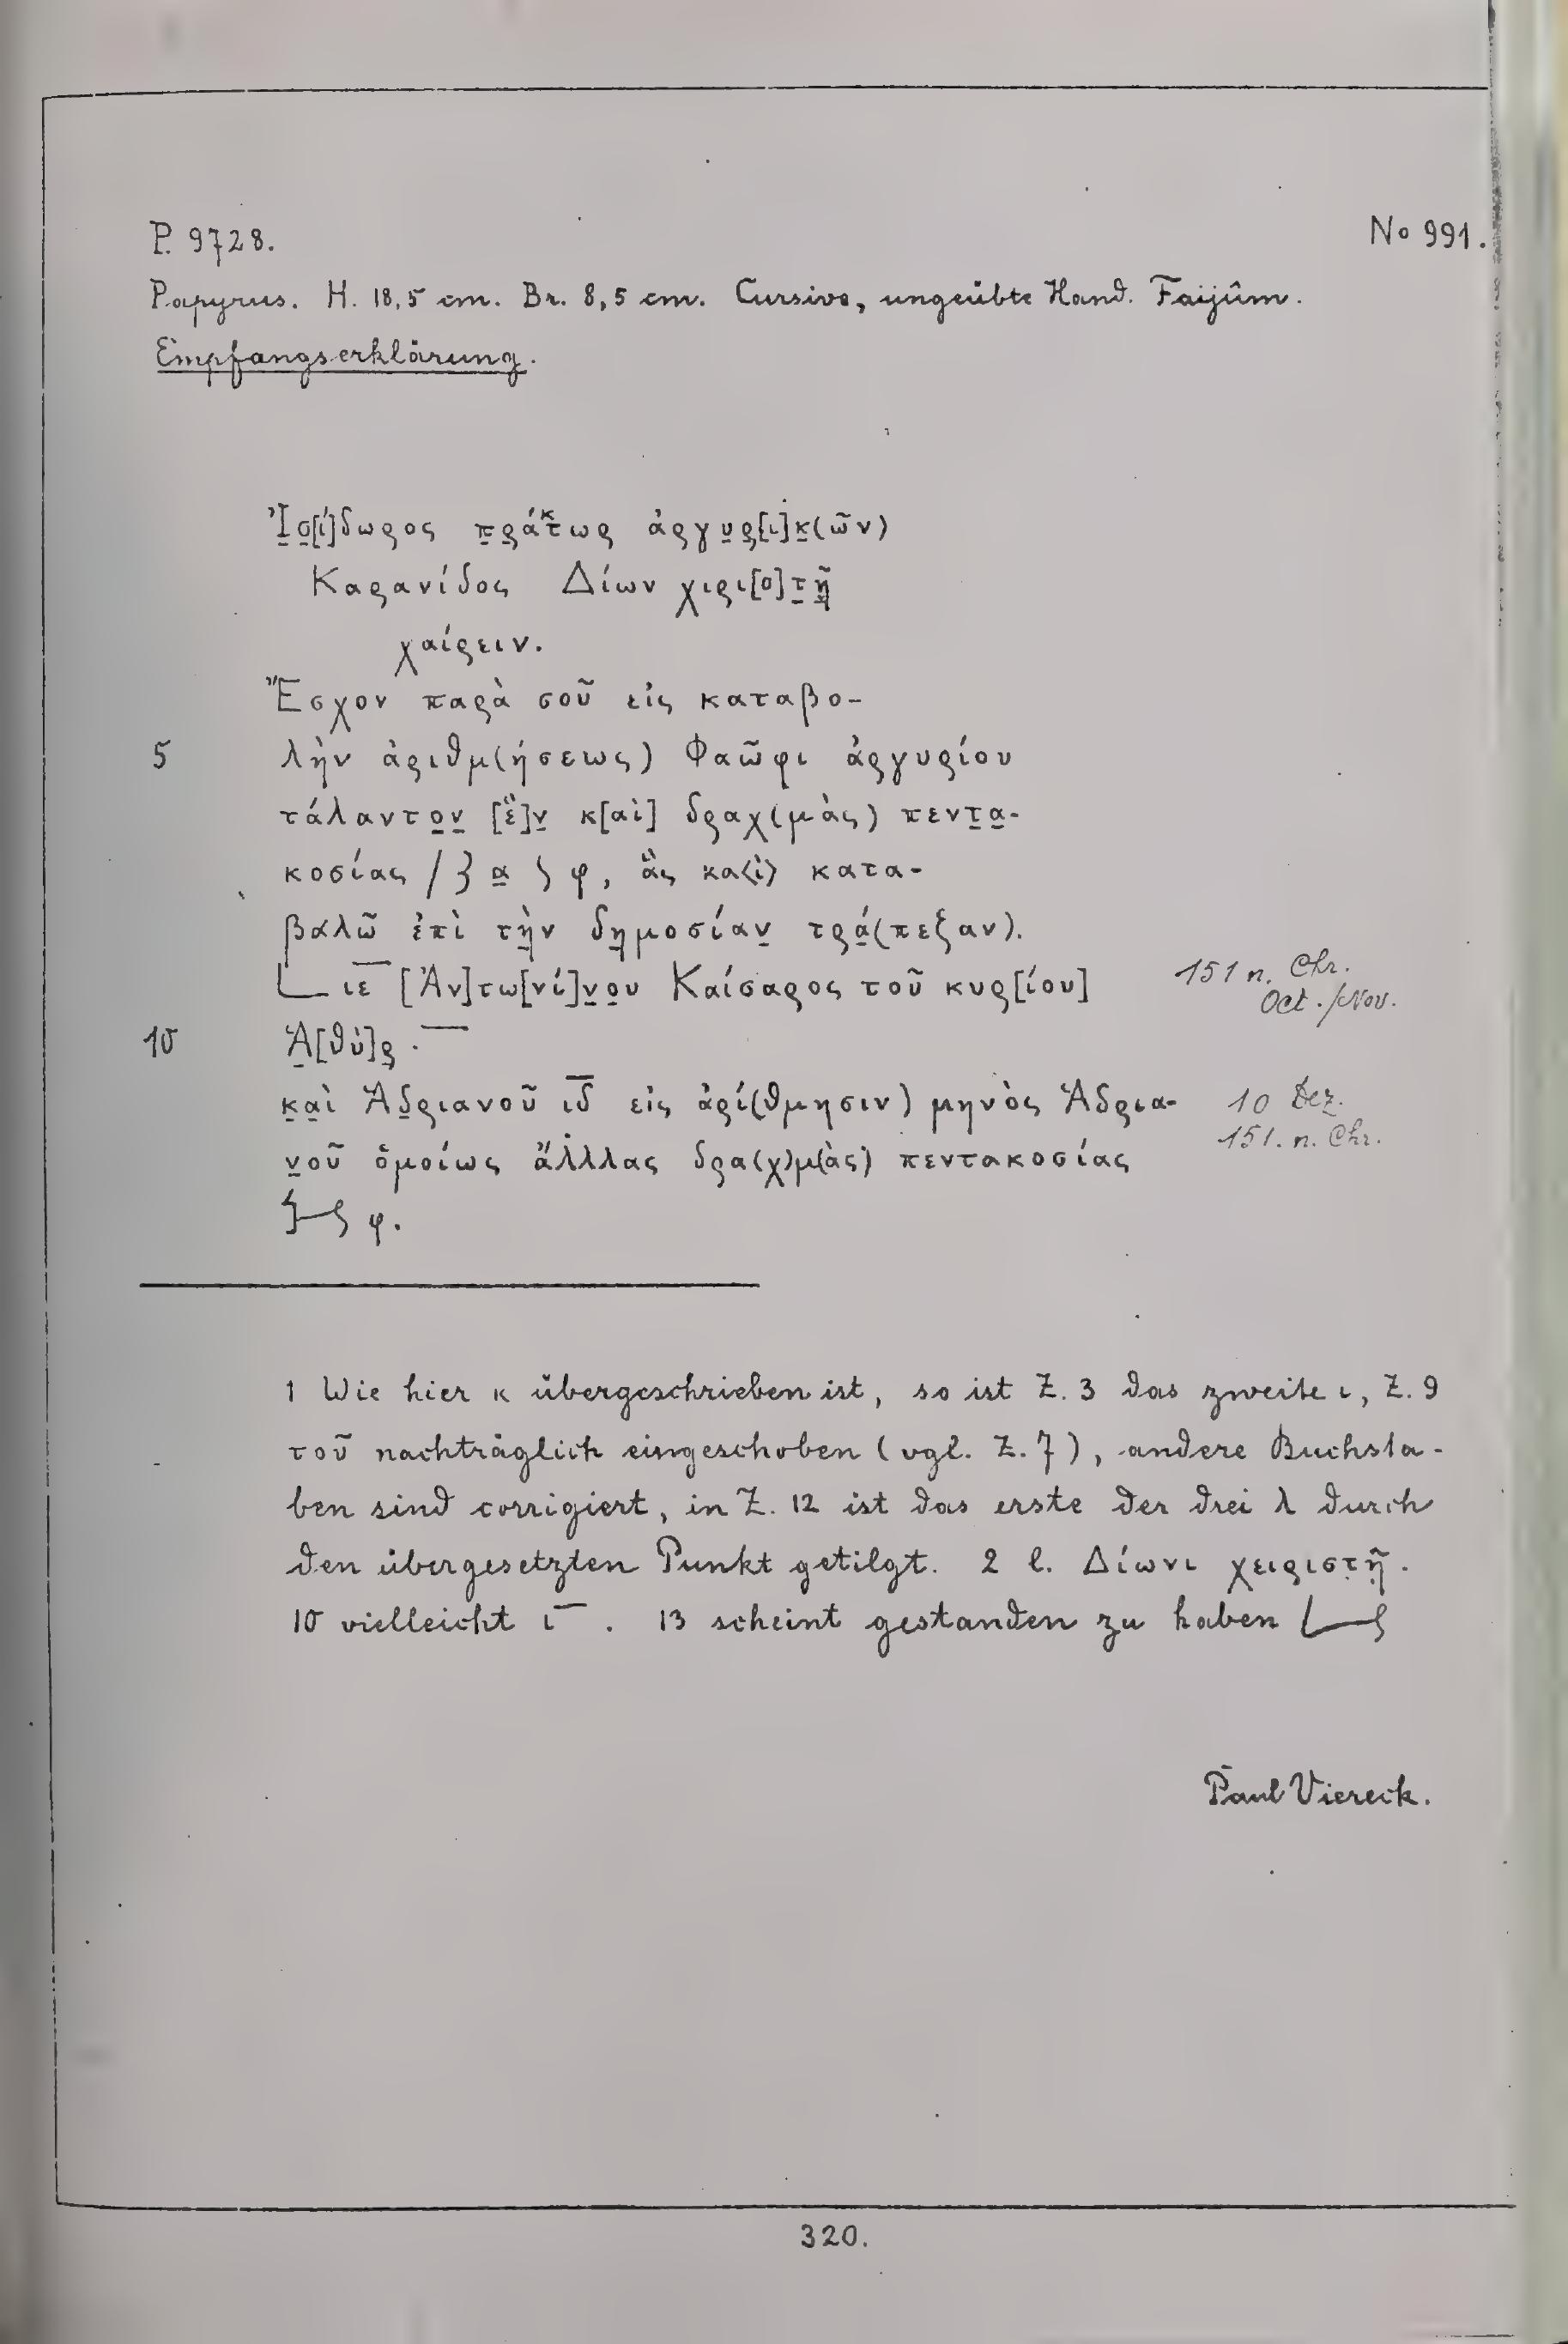 P. 9728.
No 991.
Papyrus. H. 18,5 cm. Br. 8,5 cm. Cursive, ungeübte Hand. Faijûm.
Empfangserklärung.
Ἰ̣σ̣[ί]δωρος π̣ρ̣άκτωρ ἀργυ̣ρ̣[ι]κ̣(ῶν)
Καρανίδος Δίων χιρι[σ]τ̣ῇ̣
χαίρειν.
Ἔσχον παρὰ σοῦ εἰς καταβο-
5 λὴν ἀριθμ(ήσεως) Φαῶφι ἀργυρίου
τάλαντο̣ν̣ [ἓ]ν̣ κ[αὶ] δραχ(μὰς) πεντ̣α̣-
κοσίας / α̣ φ, ἃς κα⟨ὶ⟩ κατα-
βαλῶ ἐπὶ τὴ̣ν δη̣μοσίαν̣ τρά̣(πεζαν).
L ιε̅ [Ἀν]τω[νί]ν̣ο̣υ Καίσαρος τοῦ κυρ[ίου]
151 n. Chr.
Oct./Nov.
10 Ἁ̣[θὺ]ρ̣ . ̅
κ̣α̣ὶ Ἁδ̣ριανοῦ ιδ̅ εἰς ἀρί(θμησιν) μηνὸς Ἁδρια-
10 Dez.
151. n. Chr.
ν̣οῦ ὁμοίως ἄλ̇λλας δρα(χ)μ(ὰς) πεντακοσίας
φ.
1 Wie hier κ übergeschrieben ist, so ist Z. 3 das zweite ι, Z. 9
τοῦ nachträglich eingeschoben (vgl. Z. 7), andere Buchsta-
ben sind corrigiert, in Z. 12 ist das erste der drei λ durch
den übergesetzten Punkt getilgt. 2 l. Δίωνι χειριστ̣ῇ̣.
10 vielleicht ι̅ . 13 scheint gestanden zu haben
Paul Viereck.
320.